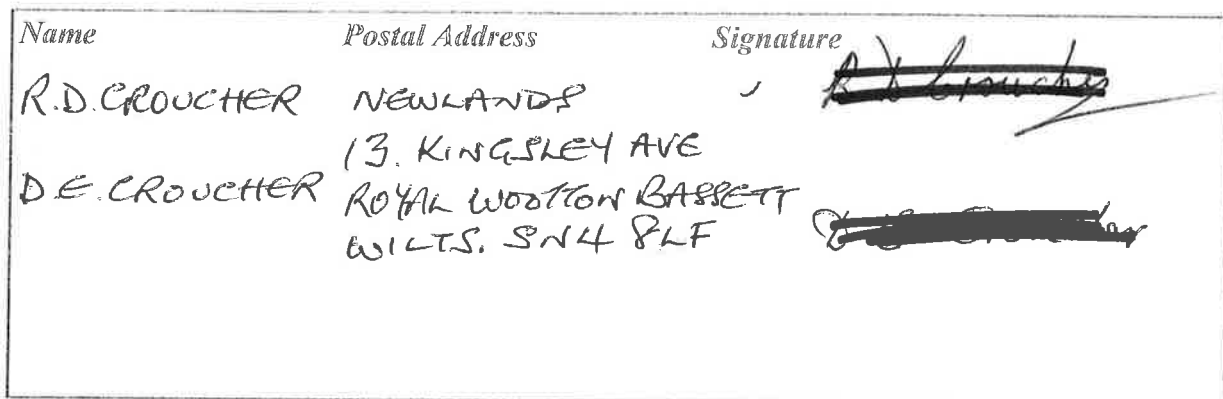 Name Postal Address Signature
R.D. CROUCHER NEWLANDS
13. KINGSLEY AVE
D.E. CROUCHER ROYAL WOOTTON BASSETT
WILTS. SN4 8LF